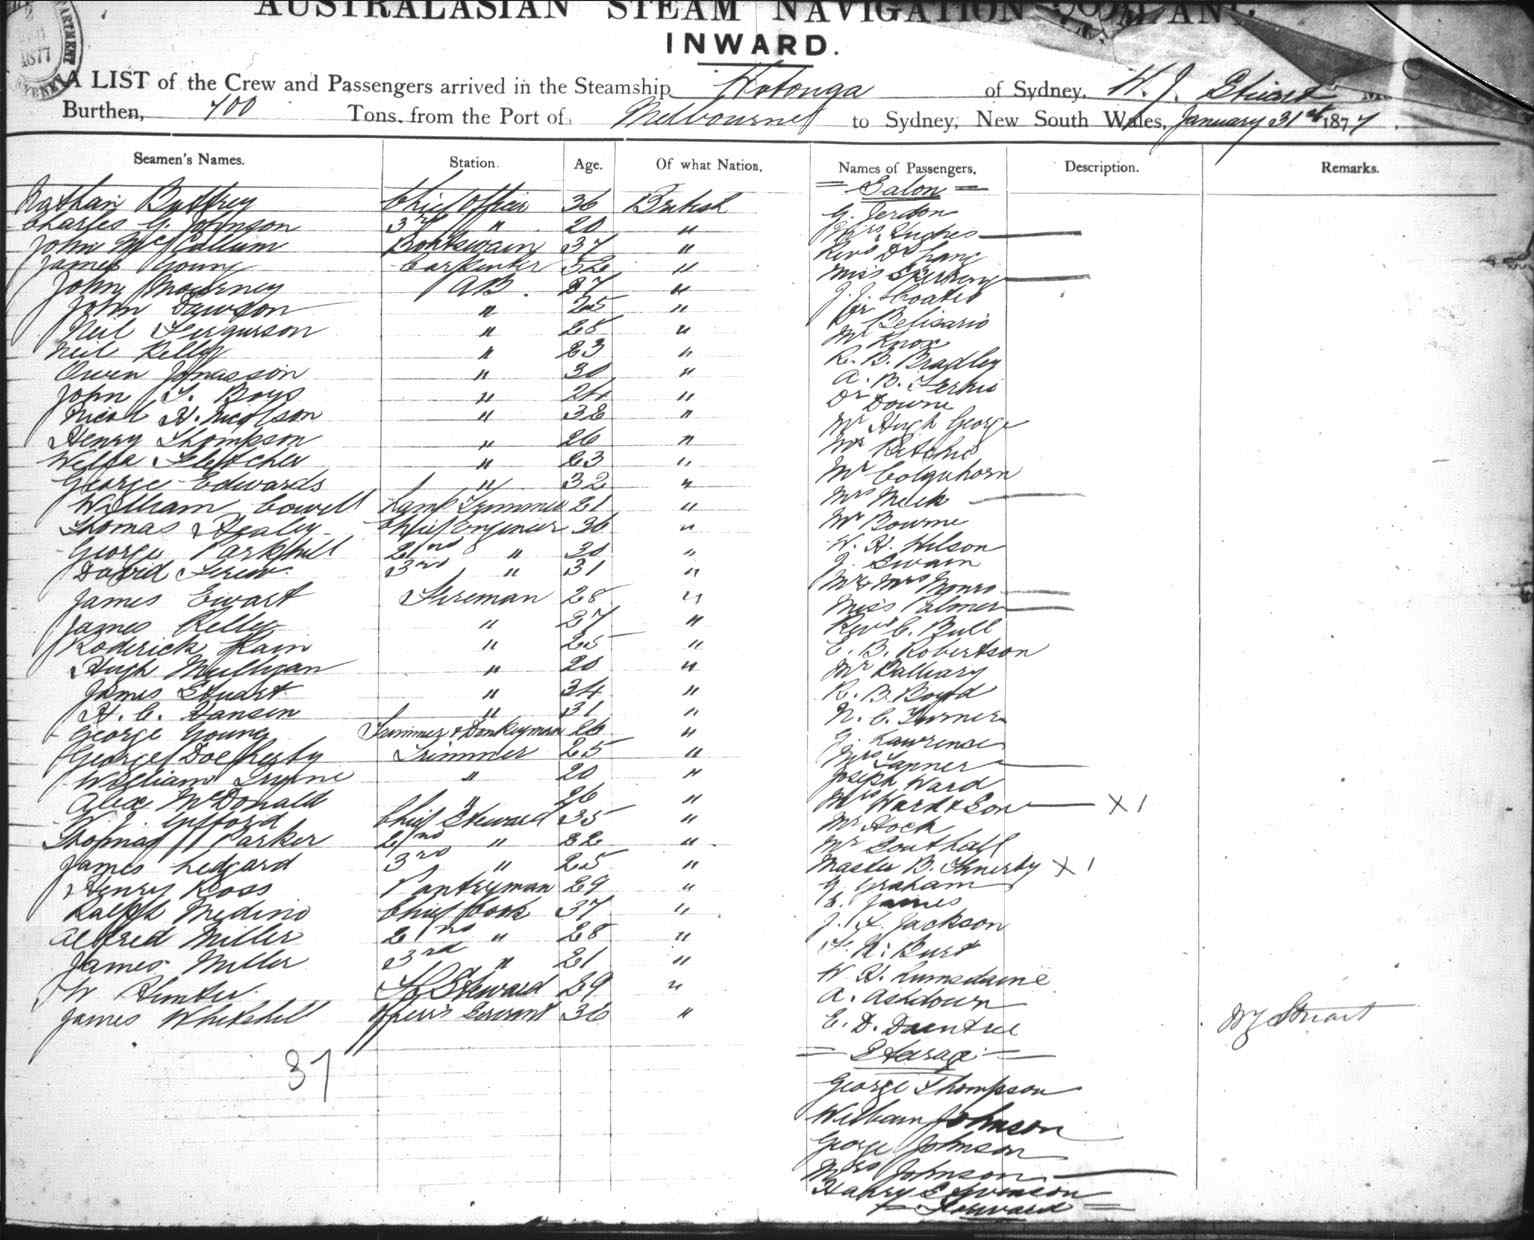 AUSTRALASIAN STEAM NAVIGATION COMPANY.
INWARD.
1877
A LIST of the Crew and Passengers arrived in the Steamship Wotonga of Sydney, W. J. Stuart
Burthen, 700 Tons, from the Port of Melbourne to Sydney, New South Wales, January 31st 1877
Seamen's Names. Station. Age. Of what Nation. Names of Passengers, Description. Remarks.
Nathan Chief Officer 36 British
Charles G. Johnson 3rd " 20 "
John McCallum Boatswain 37 "
James Young Carpenter 32 "
John AB. "
John Dawson " 25 "
Neil Fergusson " 25 "
Neil Kelly " 23 "
Owen Jonasson " 30 "
John T. Boys " 24 "
Nicol H. Nicolson " 32 "
Henry Thompson " 26 "
Fletcher " 23 "
George Edwards " 32 "
William Cowell Lamp Trimmer 21 "
Thomas Healey Chief Engineer 36 "
George Parkhill 2nd " 30 "
David Frew 3rd " 31 "
James Ewart Fireman 28 "
James Kelly " 37 "
Roderick Kain " 25 "
Hugh Mulligan " 20 "
James Stuart " 34 "
H. C. Hansen " 31 "
George Young Trimmer & Donkeyman 26 "
George Docherty Trimmer 25 "
William Irvine " 20 "
Alex McDonald " 26 "
Gifford Chief Steward 35 "
Thomas Parker 2nd " 22 "
James Ledgard 3rd " 25 "
Henry Ross Pantryman 29 "
Ralph Medino Chief Cook 37 "
Alfred Miller 2nd " 28 "
James Miller 3rd " 21 "
W Hunter Steward 29 "
James Whitehill Servant 36 "
37
Salon
G. Jerdon
Mrs Hughes
Revd Dr Lang
Miss
J. J.
Dr Belisario
Mr Knox
R. B. Bradley
A. B.
Dr Downe
Mr Hugh George
Mr Ritchie
Mr Colquhorn
Mrs
Mr Bourne
W. H. Wilson
J. Swain
Mr & Mrs Monro
Miss Palmer
Revd C. Bull
E. B. Robertson
Mr
R. B. Boyd
N. C. Turner
J. Lawrence
Mrs Tanner
Joseph Ward
Mrs Ward & Son X 1
Mr Hock
Mr Southall
Master B. X 1
G. Graham
E. James
J. F. Jackson
Burt
W. H. Lumsdaine
A. Ashdown
E. D. Daintree
WJ Stuart
Steerage
George Thompson
William Johnson
George Johnson
Mrs Johnson
Harry
Forward